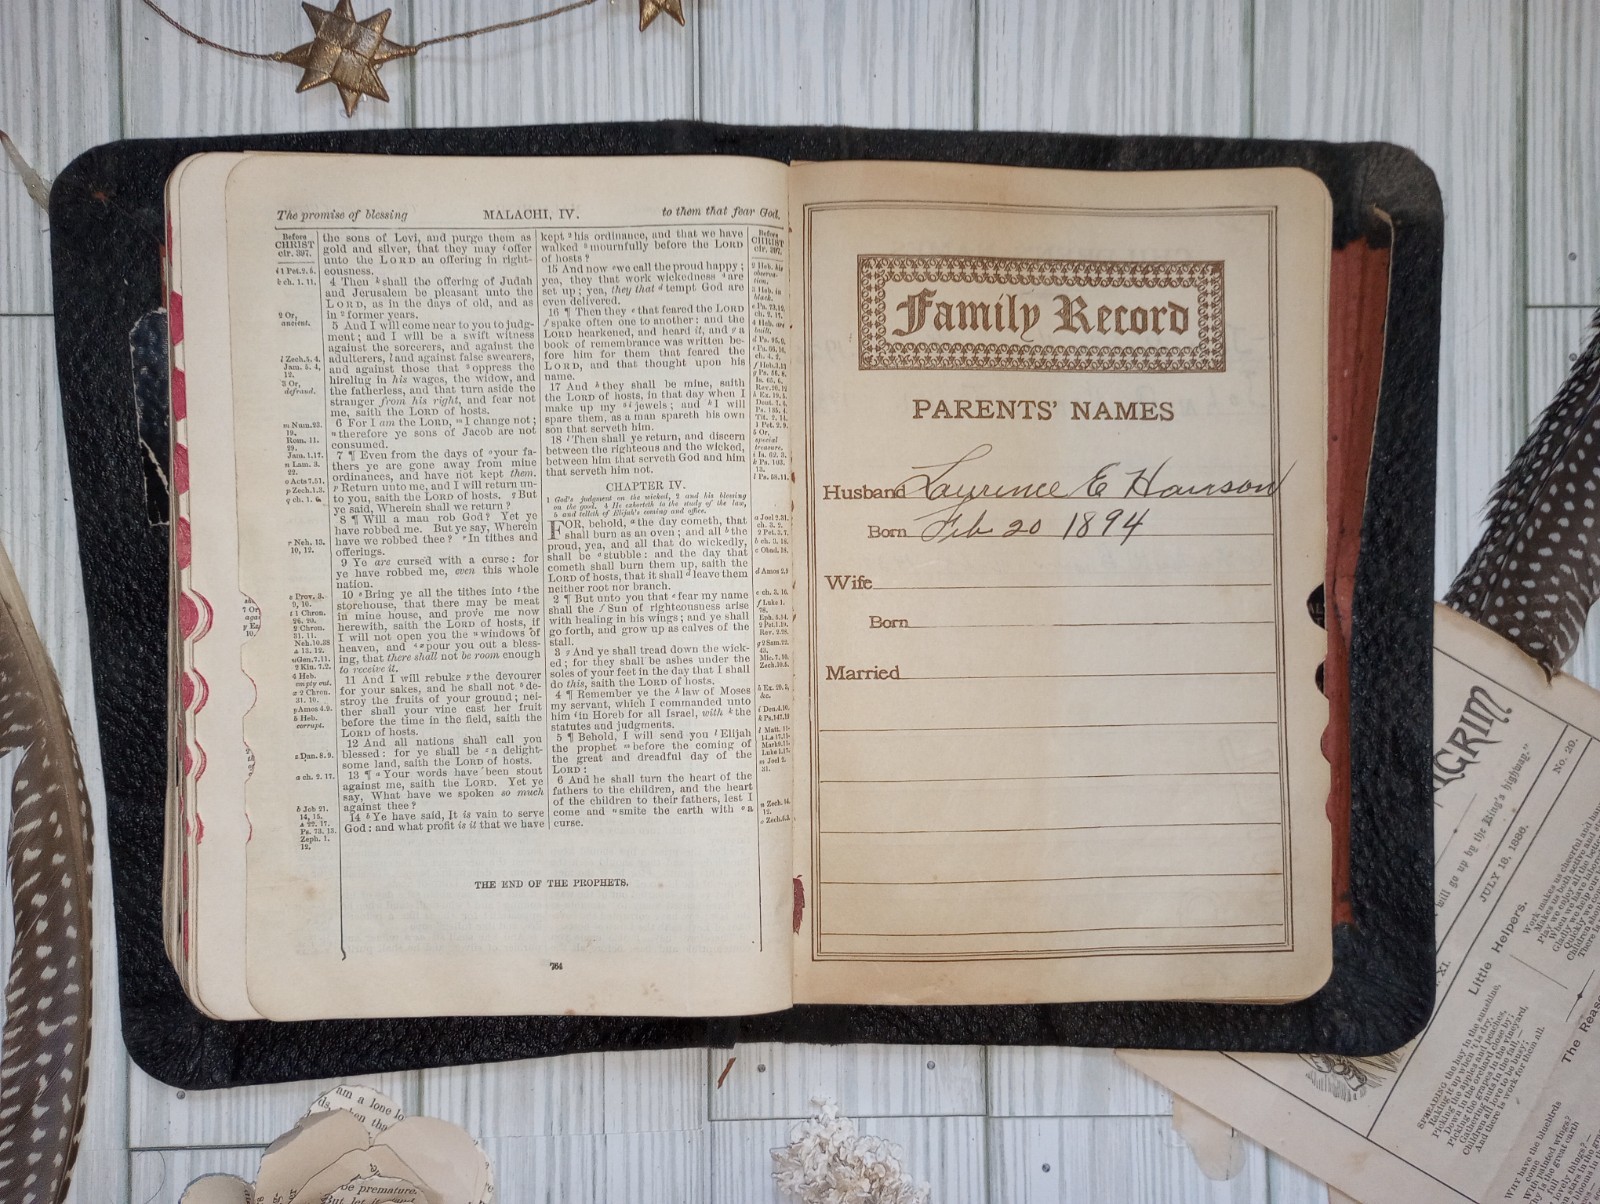 The promise of blessing MALACHI, IV. to them that fear God.
Before
CHRIST
cir. 397.
1 Pet. 2. 5.
ch. 1. 11.
2 Or,
ancient.
Zech. 5. 4.
Jam. 5. 4,
12.
3 Or,
defraud.
Num. 23.
19.
Rom. 11.
29.
Jam. 1. 17.
Lam. 3.
22.
Acts 7. 51.
Zech. 1. 3.
ch. 1. 6.
Neh. 13.
10, 12.
Prov. 3.
9, 10.
1 Chron.
26. 20.
2 Chron.
31. 11.
Neh. 10. 38
13. 12.
Gen. 7. 11.
2 Kin. 7. 2.
4 Heb.
empty out.
2 Chron.
31. 10.
Amos 4. 9.
Heb.
corrupt.
Dan. 8. 9.
ch. 2. 17.
Job 21.
14, 15.
22. 17.
Ps. 73. 13.
Zeph. 1.
12.
the sons of Levi, and purge them as
gold and silver, that they may offer
unto the LORD an offering in right-
eousness.
4 Then shall the offering of Judah
and Jerusalem be pleasant unto the
LORD, as in the days of old, and as
in former years.
5 And I will come near to you to judg-
ment; and I will be a swift witness
against the sorcerers, and against the
adulterers, and against false swearers,
and against those that oppress the
hireling in his wages, the widow, and
the fatherless, and that turn aside the
stranger from his right, and fear not
me, saith the LORD of hosts.
6 For I am the LORD, I change not;
therefore ye sons of Jacob are not
consumed.
7 ¶ Even from the days of your fa-
thers ye are gone away from mine
ordinances, and have not kept them.
Return unto me, and I will return un-
to you, saith the LORD of hosts. But
ye said, Wherein shall we return?
8 ¶ Will a man rob God? Yet ye
have robbed me. But ye say, Wherein
have we robbed thee? In tithes and
offerings.
9 Ye are cursed with a curse: for
ye have robbed me, even this whole
nation.
10 Bring ye all the tithes into the
storehouse, that there may be meat
in mine house, and prove me now
herewith, saith the LORD of hosts, if
I will not open you the windows of
heaven, and pour you out a bless-
ing, that there shall not be room enough
to receive it.
11 And I will rebuke the devourer
for your sakes, and he shall not de-
stroy the fruits of your ground; nei-
ther shall your vine cast her fruit
before the time in the field, saith the
LORD of hosts.
12 And all nations shall call you
blessed: for ye shall be a delight-
some land, saith the LORD of hosts.
13 ¶ Your words have been stout
against me, saith the LORD. Yet ye
say, What have we spoken so much
against thee?
14 Ye have said, It is vain to serve
God: and what profit is it that we have
kept his ordinance, and that we have
walked mournfully before the LORD
of hosts?
15 And now we call the proud happy;
yea, they that work wickedness are
set up; yea, they that tempt God are
even delivered.
16 ¶ Then they that feared the LORD
spake often one to another: and the
LORD hearkened, and heard it, and a
book of remembrance was written be-
fore him for them that feared the
LORD, and that thought upon his
name.
17 And they shall be mine, saith
the LORD of hosts, in that day when I
make up my jewels; and I will
spare them, as a man spareth his own
son that serveth him.
18 Then shall ye return, and discern
between the righteous and the wicked,
between him that serveth God and him
that serveth him not.
CHAPTER IV.
1 God's judgment on the wicked, 2 and his blessing
on the good. 4 He exhorteth to the study of the law,
5 and telleth of Elijah's coming and office.
FOR, behold, the day cometh, that
shall burn as an oven; and all the
proud, yea, and all that do wickedly,
shall be stubble: and the day that
cometh shall burn them up, saith the
LORD of hosts, that it shall leave them
neither root nor branch.
2 ¶ But unto you that fear my name
shall the Sun of righteousness arise
with healing in his wings; and ye shall
go forth, and grow up as calves of the
stall.
3 And ye shall tread down the wick-
ed; for they shall be ashes under the
soles of your feet in the day that I shall
do this, saith the LORD of hosts.
4 ¶ Remember ye the law of Moses
my servant, which I commanded unto
him in Horeb for all Israel, with the
statutes and judgments.
5 ¶ Behold, I will send you Elijah
the prophet before the coming of
the great and dreadful day of the
LORD:
6 And he shall turn the heart of the
fathers to the children, and the heart
of the children to their fathers, lest I
come and smite the earth with a
curse.
Before
CHRIST
cir. 397.
THE END OF THE PROPHETS.
764
Family Record
PARENTS' NAMES
Husband Laurince E Harrson
Born Feb 20 1894
Wife
Born
Married
will go up by the King's highway."
XI.
JULY 18, 1886.
No. 29.
Little Helpers.
SPREADING the hay in the sunshine,
Raking it up when 't is dry,
Picking the apples and peaches,
Down in the orchard close by;
Picking the grapes in the vineyard,
Gathering nuts in the fall,
Children all love to be busy;
And there is work for them all.
The Reas
am a lone lo
be premature.
But let it